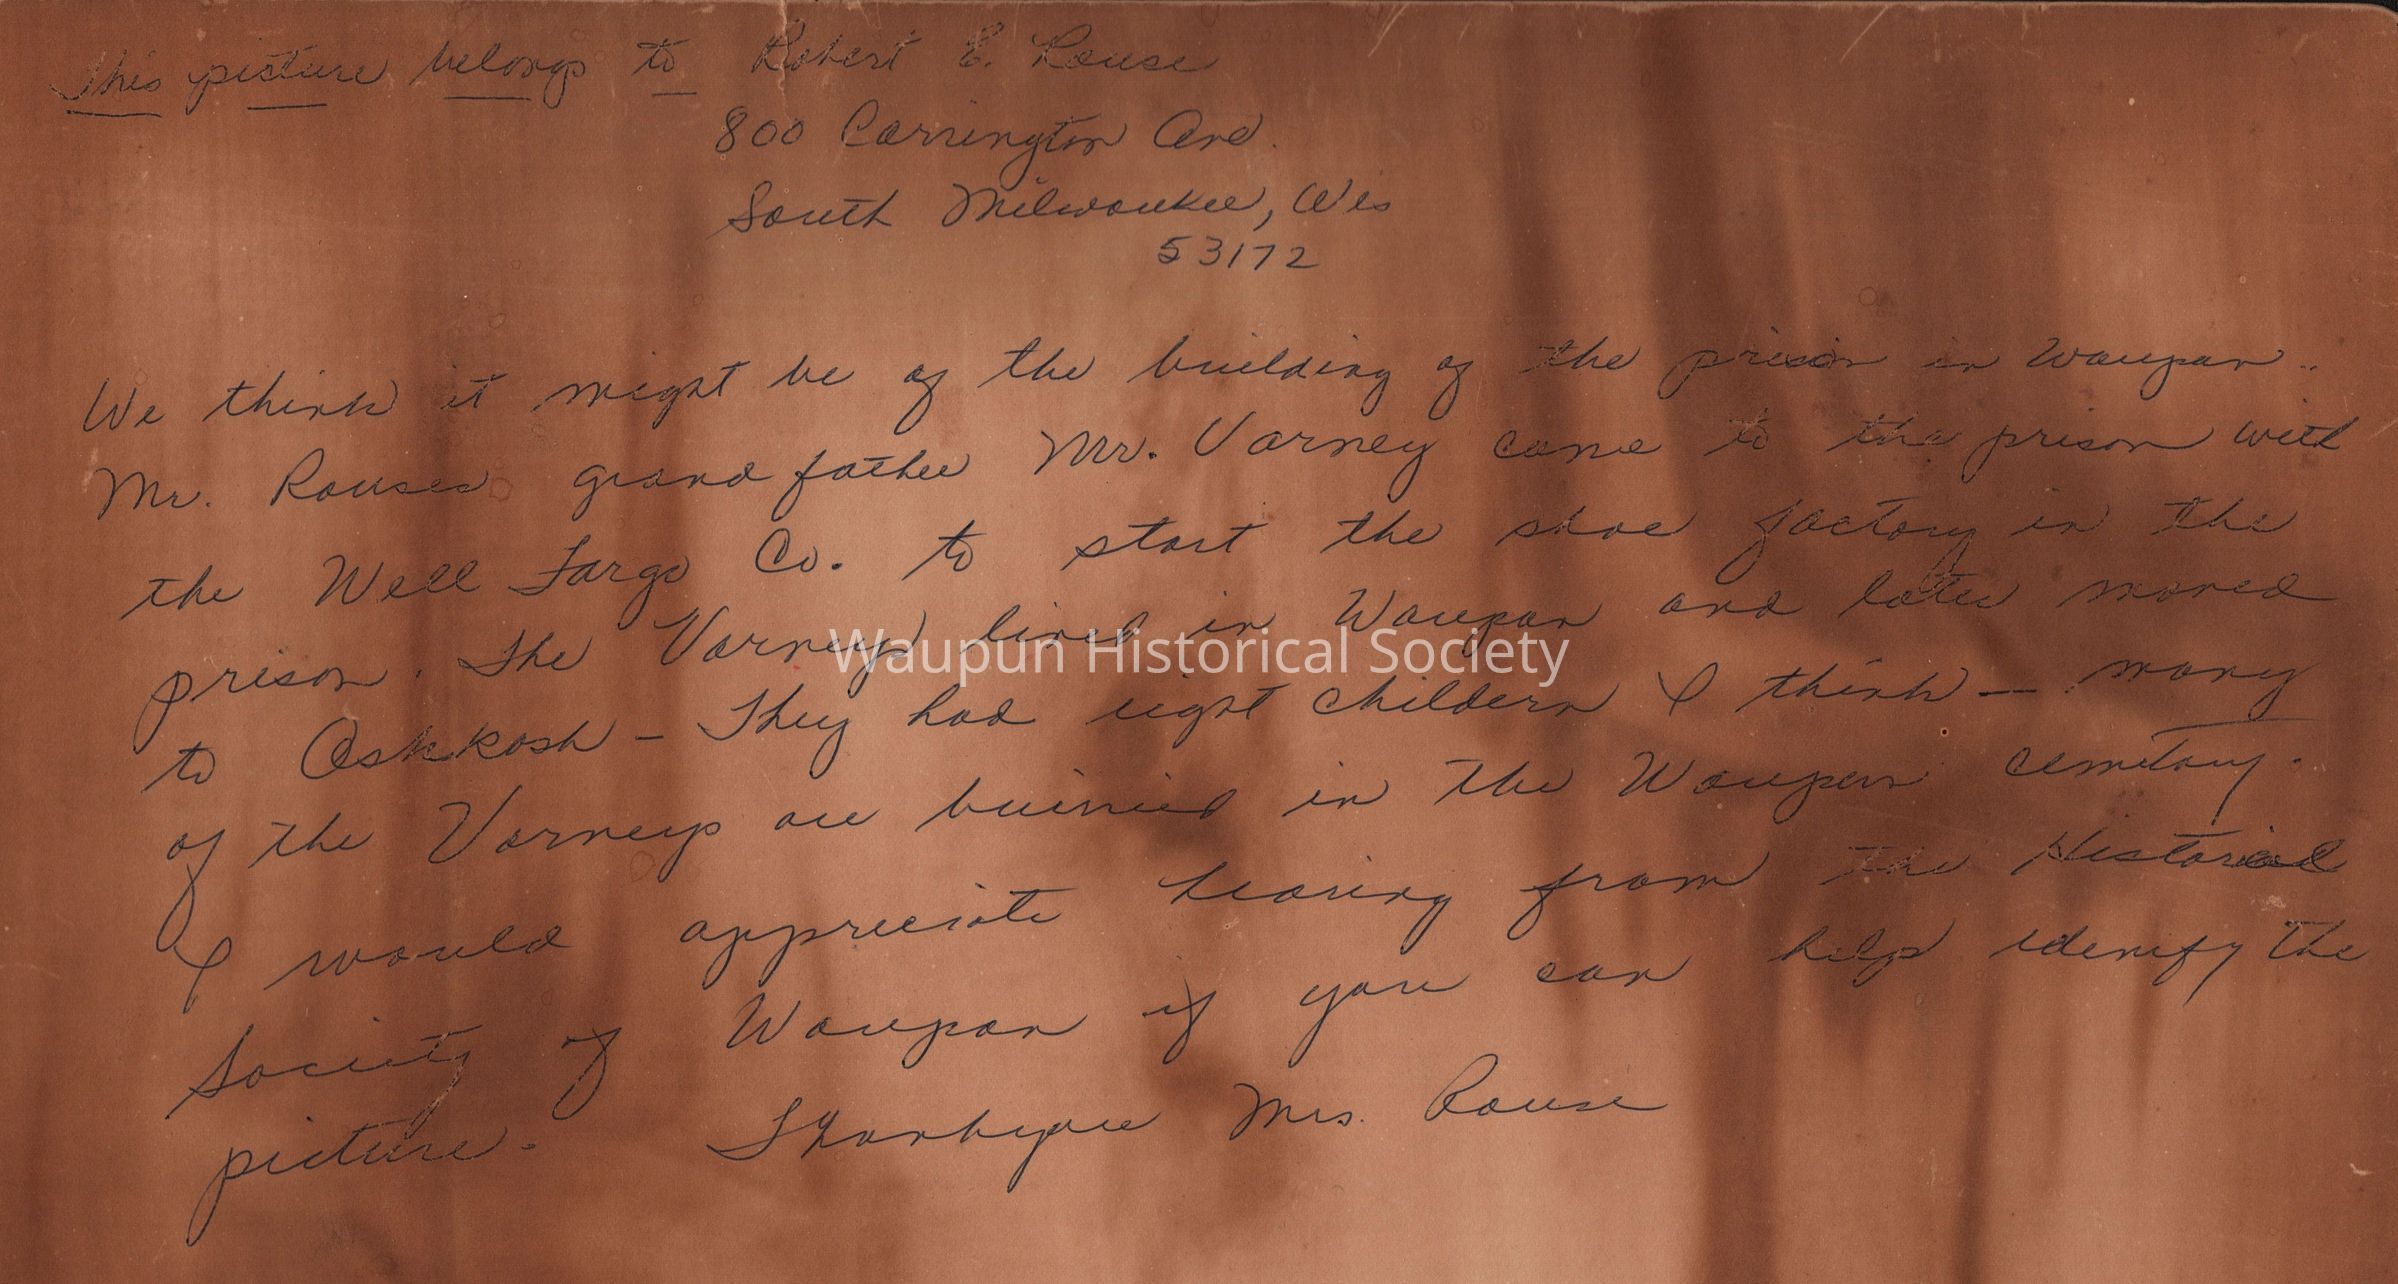 This picture belongs to Robert E. Rouse
800 Carrington Ave.
South Milwaukee, Wis
53172
We think it might be of the building of the prison in Waupan..
Mr. Rouses grand father Mr. Varney came to the prison with
the Well Fargo Co. to start the shoe factory in the
prison. The Varneys lived in Waupan and later moved
to Oshkosh - They had eight childern I think - many
of the Varneys are buirried in the Waupun cemetary.
I would appreciate hearing from the Historical
Society of Waupan if you can help idenify the
picture. Thankyou Mrs. Rouse
Waupun Historical Society